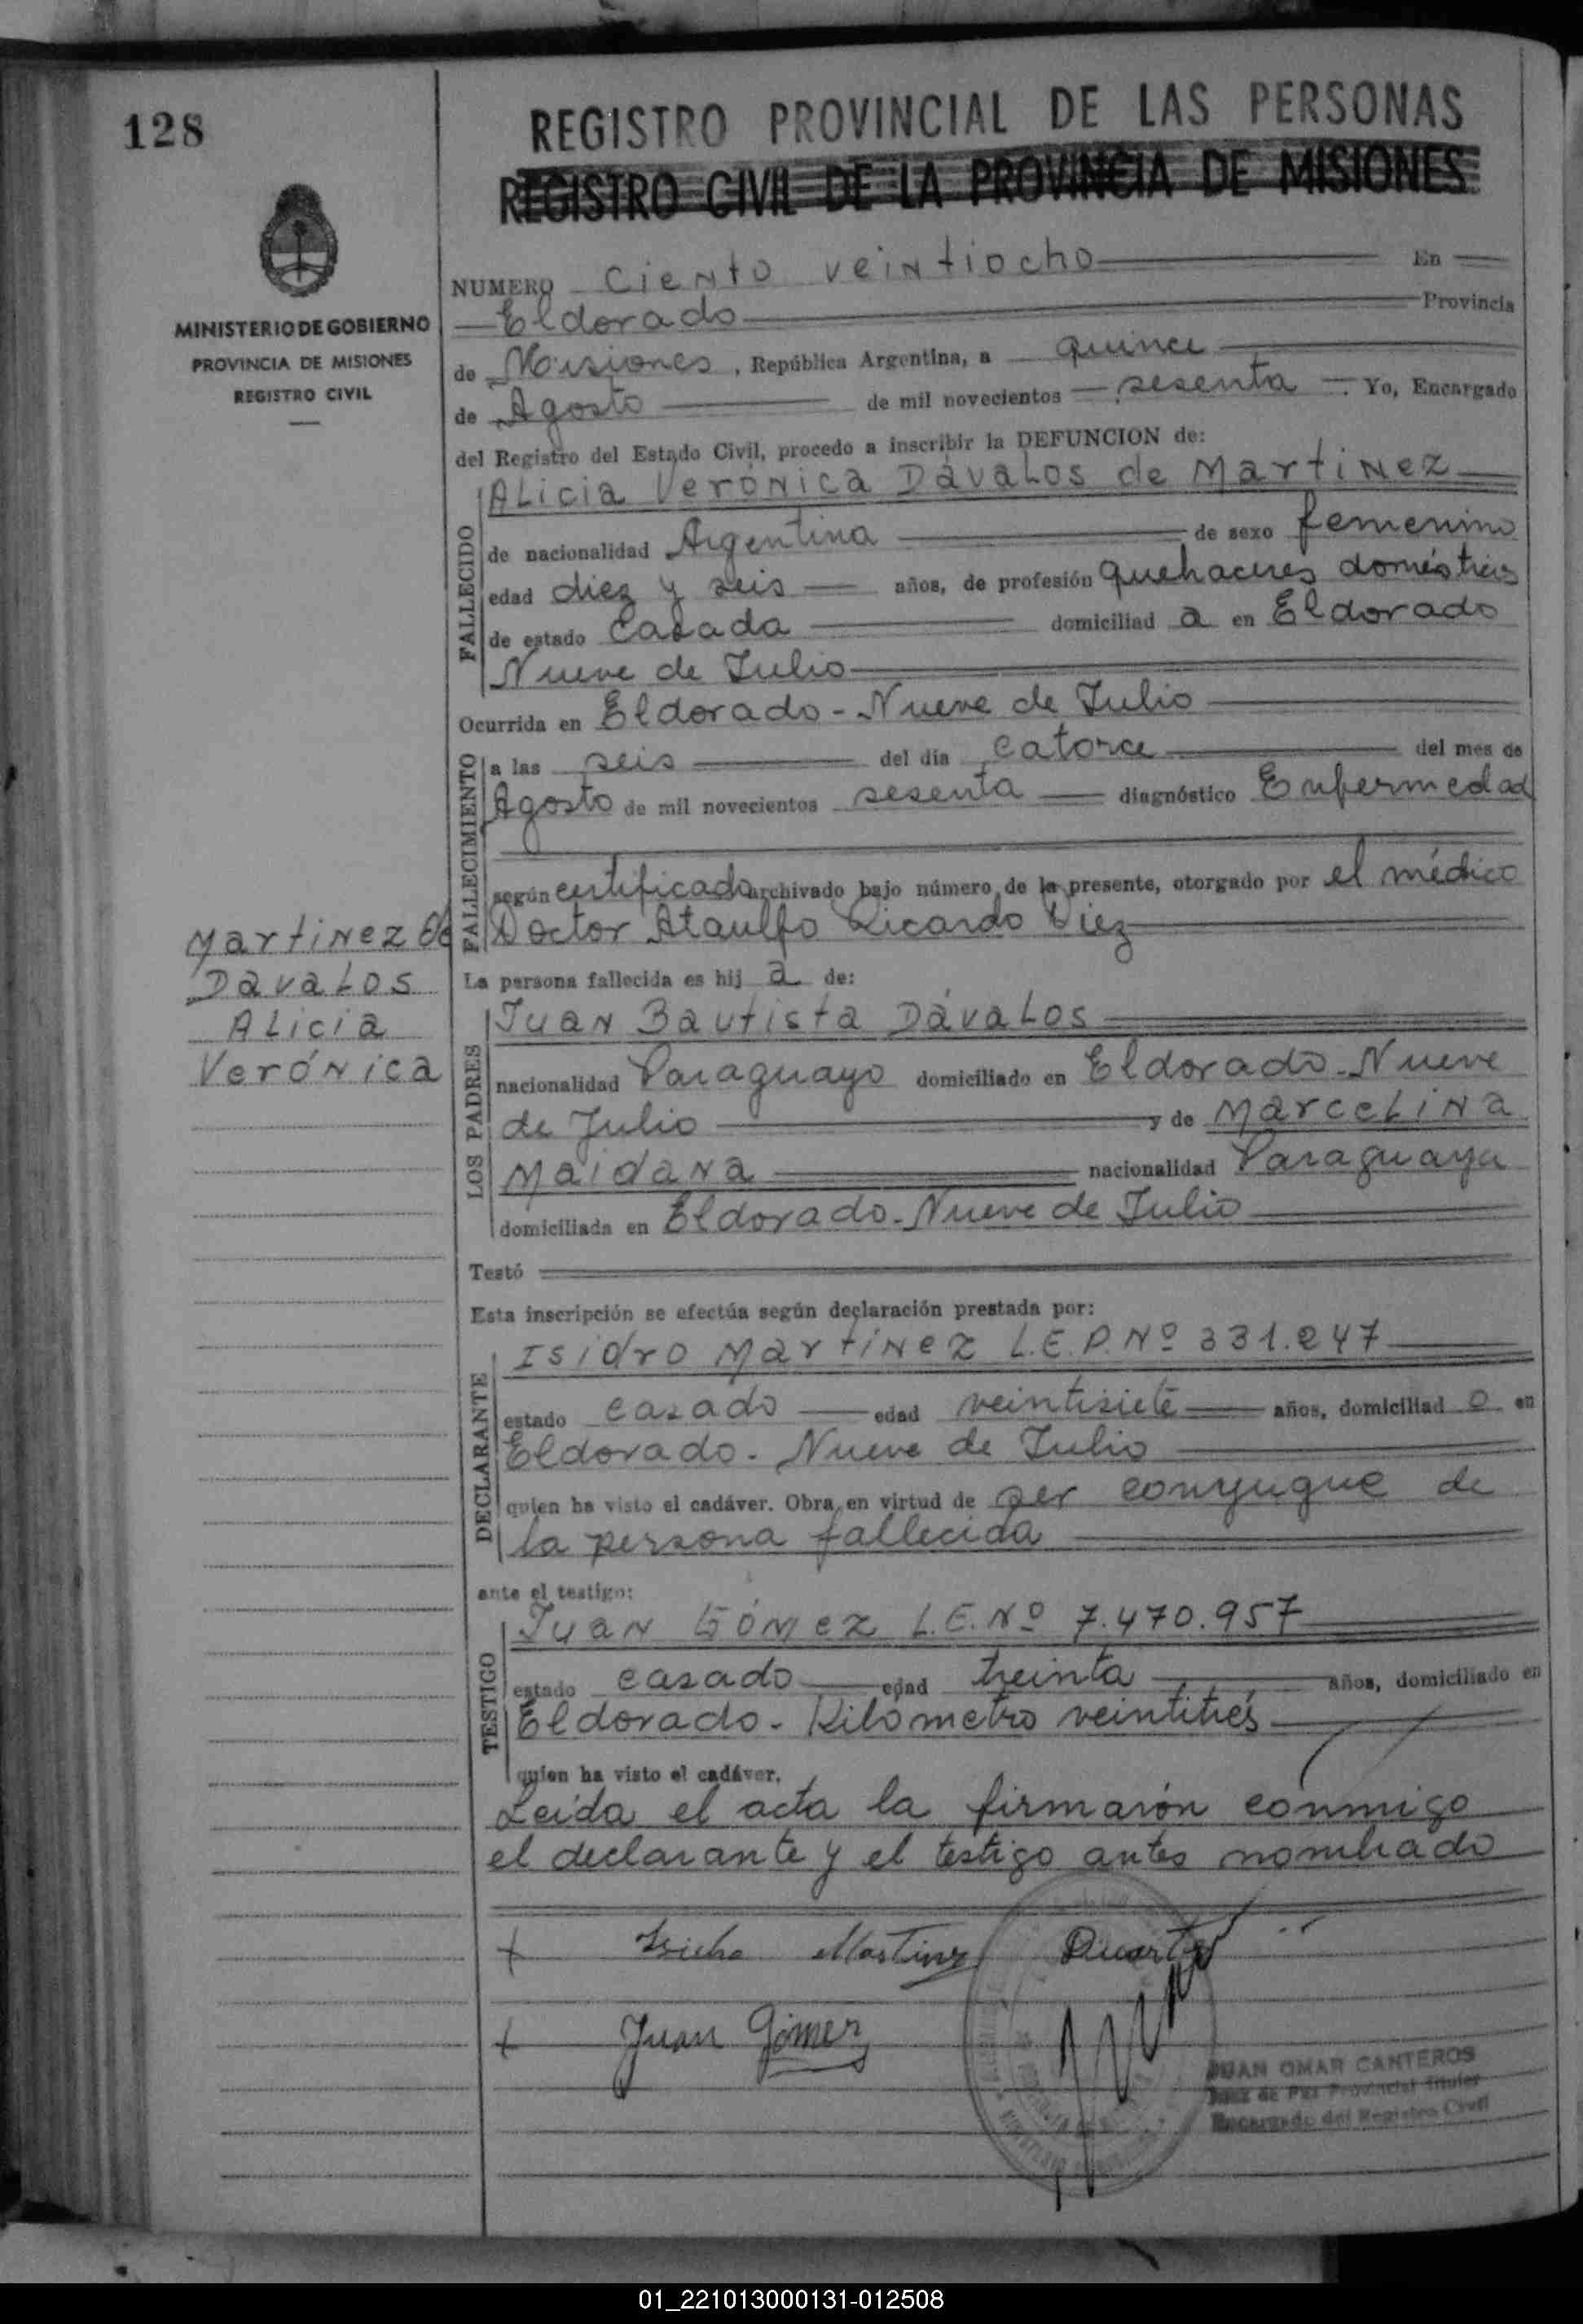 128
REGISTRO PROVINCIAL DE LAS PERSONAS
REGISTRO CIVIL DE LA PROVINCIA DE MISIONES
MINISTERIO DE GOBIERNO
PROVINCIA DE MISIONES
REGISTRO CIVIL
NUMERO Ciento veintiocho En
Eldorado Provincia
de Misiones, República Argentina, a quince
de Agosto de mil novecientos sesenta. Yo, Encargado
del Registro del Estado Civil, procedo a inscribir la DEFUNCION de:
Alicia Verónica Dávalos de Martinez
FALLECIDO
de nacionalidad Argentina de sexo femenino
edad diez y seis años, de profesión quehaceres domésticos
de estado Casada domiciliad a en Eldorado
Nueve de Julio
Ocurrida en Eldorado - Nueve de Julio
FALLECIMIENTO
a las seis del día catorce del mes de
Agosto de mil novecientos sesenta diagnóstico Enfermedad
según certificado archivado bajo número de la presente, otorgado por el médico
Doctor Ataulfo Ricardo Diez
Martinez de
Davalos
Alicia
Verónica
La persona fallecida es hij a de:
LOS PADRES
Juan Bautista Dávalos
nacionalidad Paraguayo domiciliado en Eldorado - Nueve
de Julio y de Marcelina
Maidana nacionalidad Paraguaya
domiciliada en Eldorado - Nueve de Julio
Testó
Esta inscripción se efectúa según declaración prestada por:
DECLARANTE
Isidro Martínez L.E.P. Nº 331.247
estado casado edad veintisiete años, domiciliad o en
Eldorado - Nueve de Julio
quien ha visto el cadáver. Obra en virtud de ser conyugue de
la persona fallecida
ante el testigo:
TESTIGO
Juan Gómez L.E. Nº 7.470.957
estado casado edad treinta años, domiciliado en
Eldorado - Kilómetro veintitrés
quien ha visto el cadáver.
Leída el acta la firmarón conmigo
el declarante y el testigo antes nombrado
Martinez Duarte
Juan Gómez
JUAN OMAR CANTEROS
Juez de Paz Provincial Titular
Encargado del Registro Civil
01_221013000131-012508